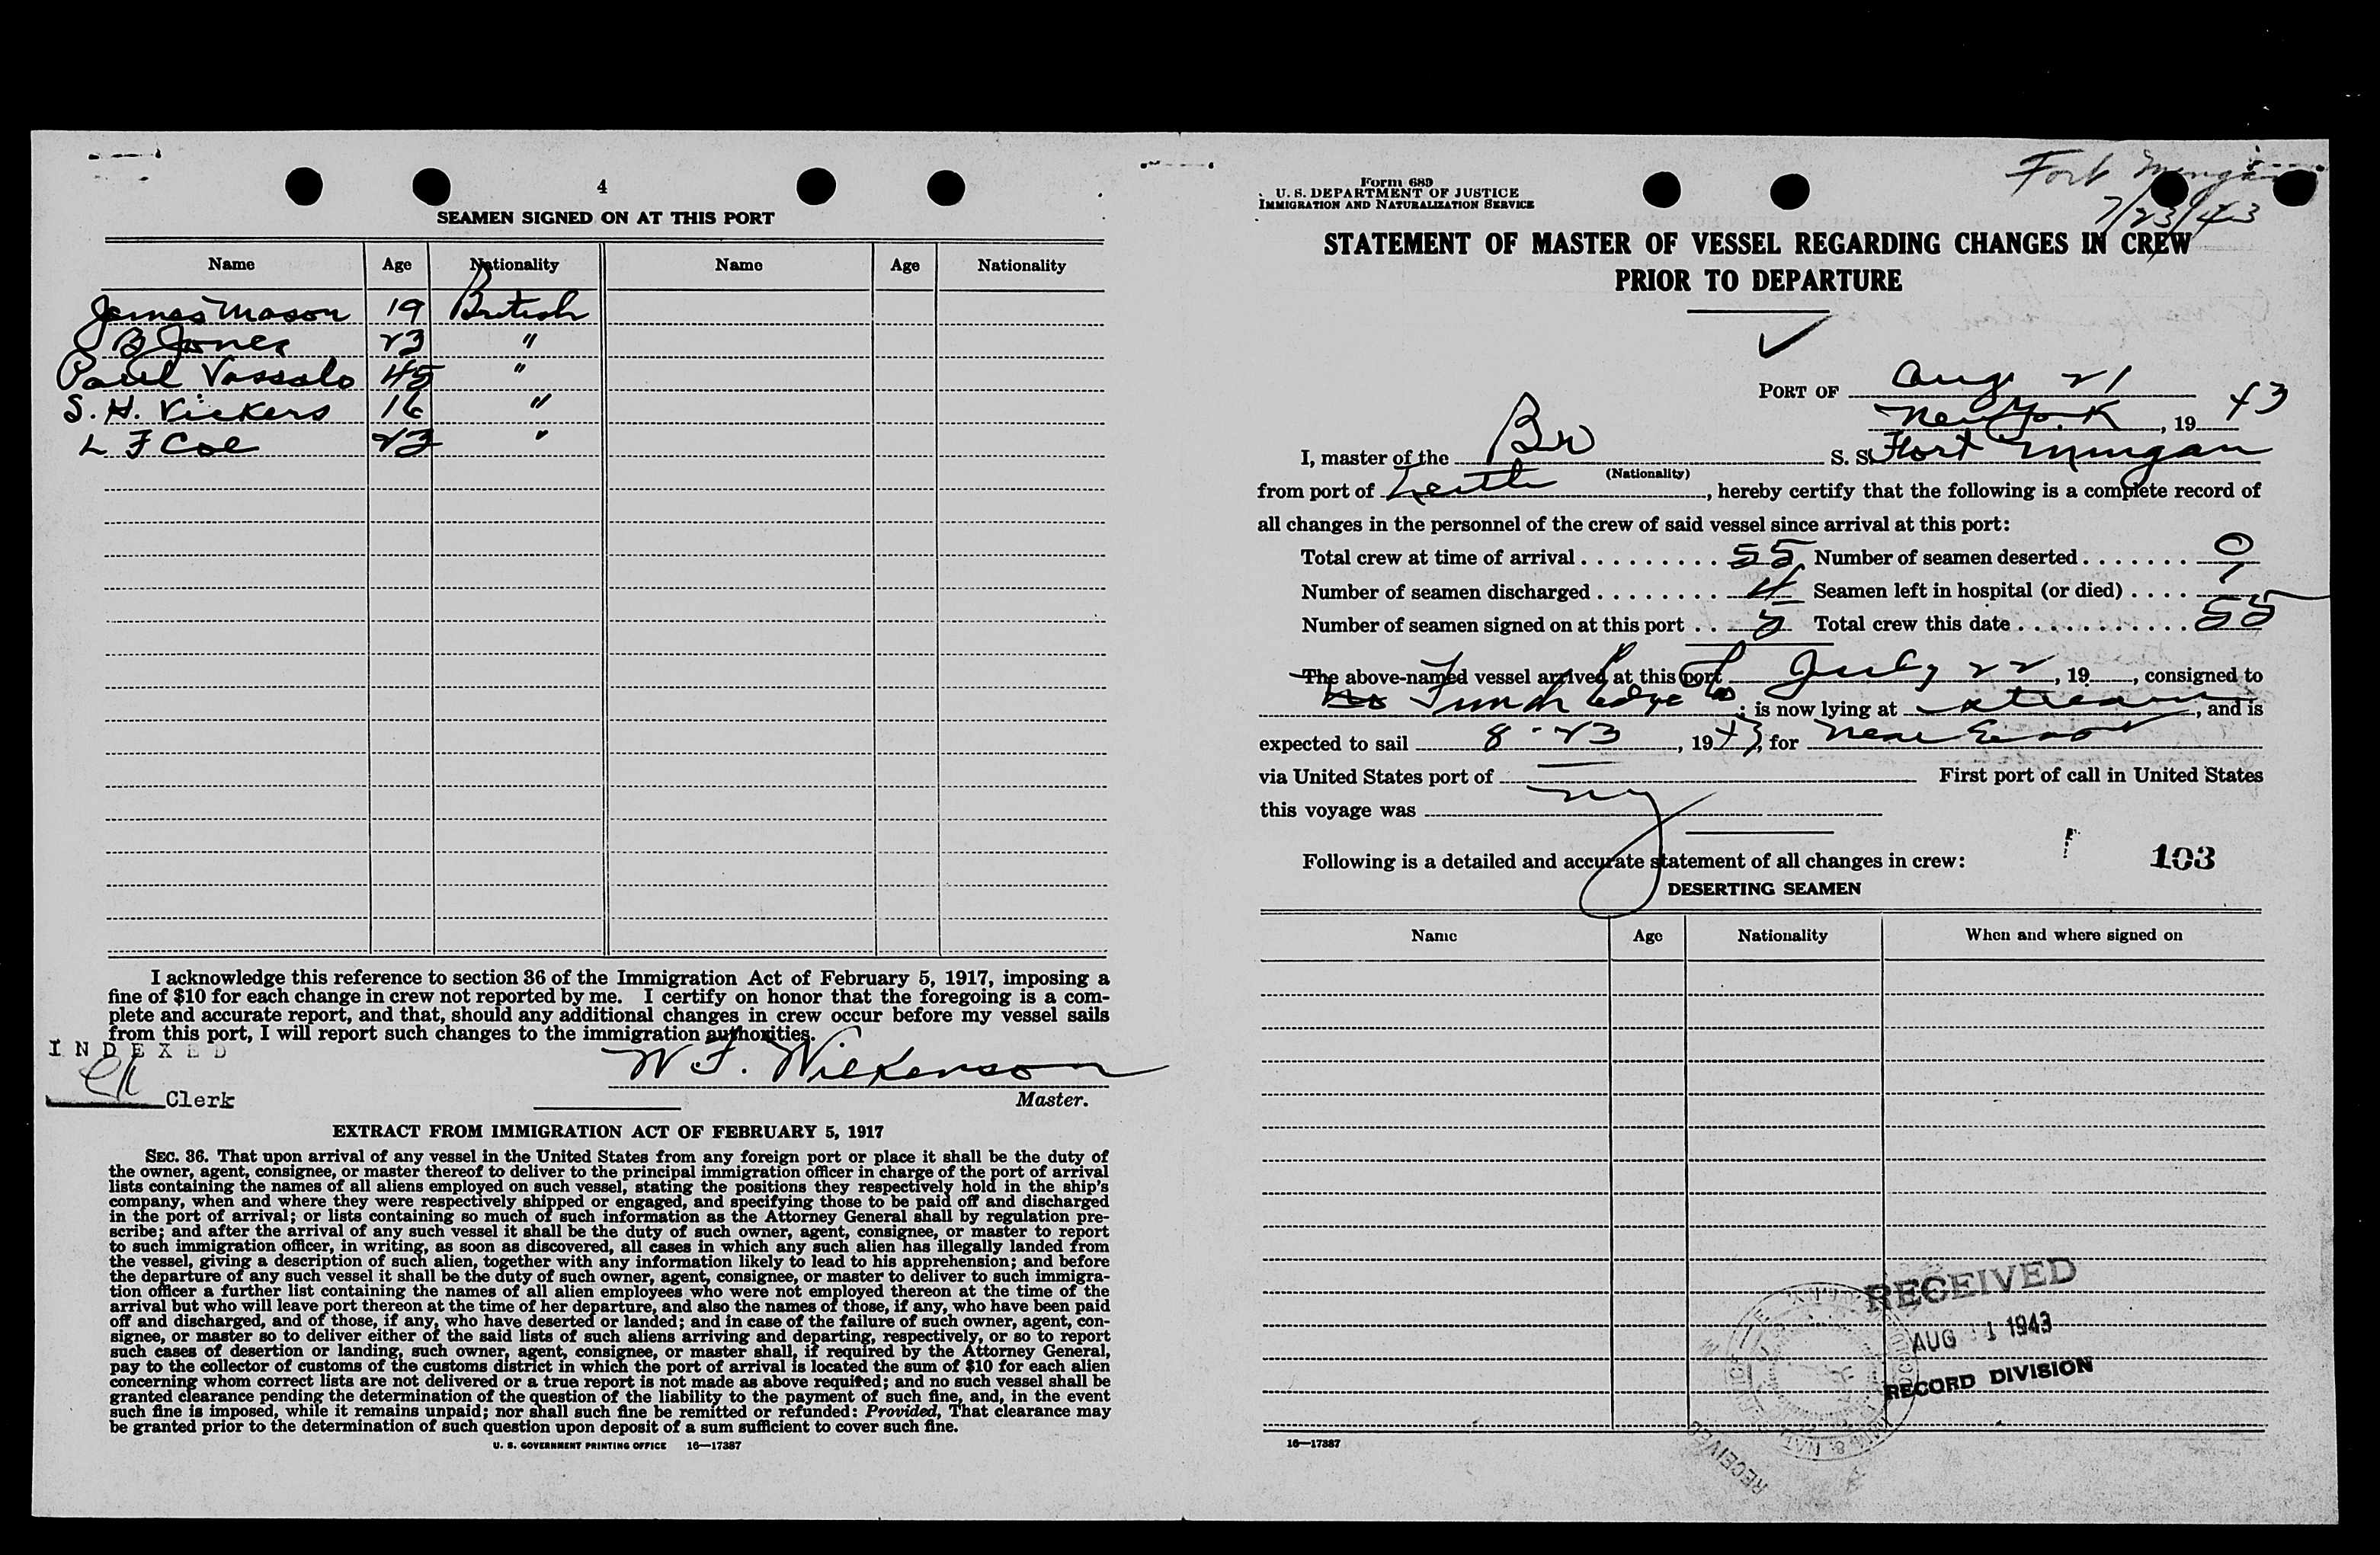 4
SEAMEN SIGNED ON AT THIS PORT
Name Age Nationality Name Age Nationality
James Mason 19 British
B Jones 23 "
Paul Vassalo 45 "
S. H. Vickers 16 "
L F Coe 23 "
I acknowledge this reference to section 36 of the Immigration Act of February 5, 1917, imposing a
fine of $10 for each change in crew not reported by me. I certify on honor that the foregoing is a com-
plete and accurate report, and that, should any additional changes in crew occur before my vessel sails
from this port, I will report such changes to the immigration authorities.
INDEXED
W F. Wilkenson
Clerk
Master.
EXTRACT FROM IMMIGRATION ACT OF FEBRUARY 5, 1917
SEC. 36. That upon arrival of any vessel in the United States from any foreign port or place it shall be the duty of
the owner, agent, consignee, or master thereof to deliver to the principal immigration officer in charge of the port of arrival
lists containing the names of all aliens employed on such vessel, stating the positions they respectively hold in the ship's
company, when and where they were respectively shipped or engaged, and specifying those to be paid off and discharged
in the port of arrival; or lists containing so much of such information as the Attorney General shall by regulation pre-
scribe; and after the arrival of any such vessel it shall be the duty of such owner, agent, consignee, or master to report
to such immigration officer, in writing, as soon as discovered, all cases in which any such alien has illegally landed from
the vessel, giving a description of such alien, together with any information likely to lead to his apprehension; and before
the departure of any such vessel it shall be the duty of such owner, agent, consignee, or master to deliver to such immigra-
tion officer a further list containing the names of all alien employees who were not employed thereon at the time of the
arrival but who will leave port thereon at the time of her departure, and also the names of those, if any, who have been paid
off and discharged, and of those, if any, who have deserted or landed; and in case of the failure of such owner, agent, con-
signee, or master so to deliver either of the said lists of such aliens arriving and departing, respectively, or so to report
such cases of desertion or landing, such owner, agent, consignee, or master shall, if required by the Attorney General,
pay to the collector of customs of the customs district in which the port of arrival is located the sum of $10 for each alien
concerning whom correct lists are not delivered or a true report is not made as above required; and no such vessel shall be
granted clearance pending the determination of the question of the liability to the payment of such fine, and, in the event
such fine is imposed, while it remains unpaid; nor shall such fine be remitted or refunded: Provided, That clearance may
be granted prior to the determination of such question upon deposit of a sum sufficient to cover such fine.
U. S. GOVERNMENT PRINTING OFFICE 16—17387
Form 689
U. S. DEPARTMENT OF JUSTICE
IMMIGRATION AND NATURALIZATION SERVICE
Fort Mingan
7/23/43
STATEMENT OF MASTER OF VESSEL REGARDING CHANGES IN CREW
PRIOR TO DEPARTURE
PORT OF Aug 21
New York, 19 43
I, master of the Br S. S. Fort Mingan
(Nationality)
from port of Leith, hereby certify that the following is a complete record of
all changes in the personnel of the crew of said vessel since arrival at this port:
Total crew at time of arrival . . . . . . . . . 55 Number of seamen deserted . . . . . . . 0
Number of seamen discharged . . . . . . . . 4 Seamen left in hospital (or died) . . . . 1
Number of seamen signed on at this port . . 5 Total crew this date . . . . . . . . . . . 55
The above-named vessel arrived at this port July 22, 19, consigned to
Funch Edye Co; is now lying at stream, and is
expected to sail 8-23, 1943, for Near East
via United States port of First port of call in United States
this voyage was NY
Following is a detailed and accurate statement of all changes in crew:
103
DESERTING SEAMEN
Name Age Nationality When and where signed on
RECEIVED
AUG 1 1943
RECORD DIVISION
RECEIVED
16—17387